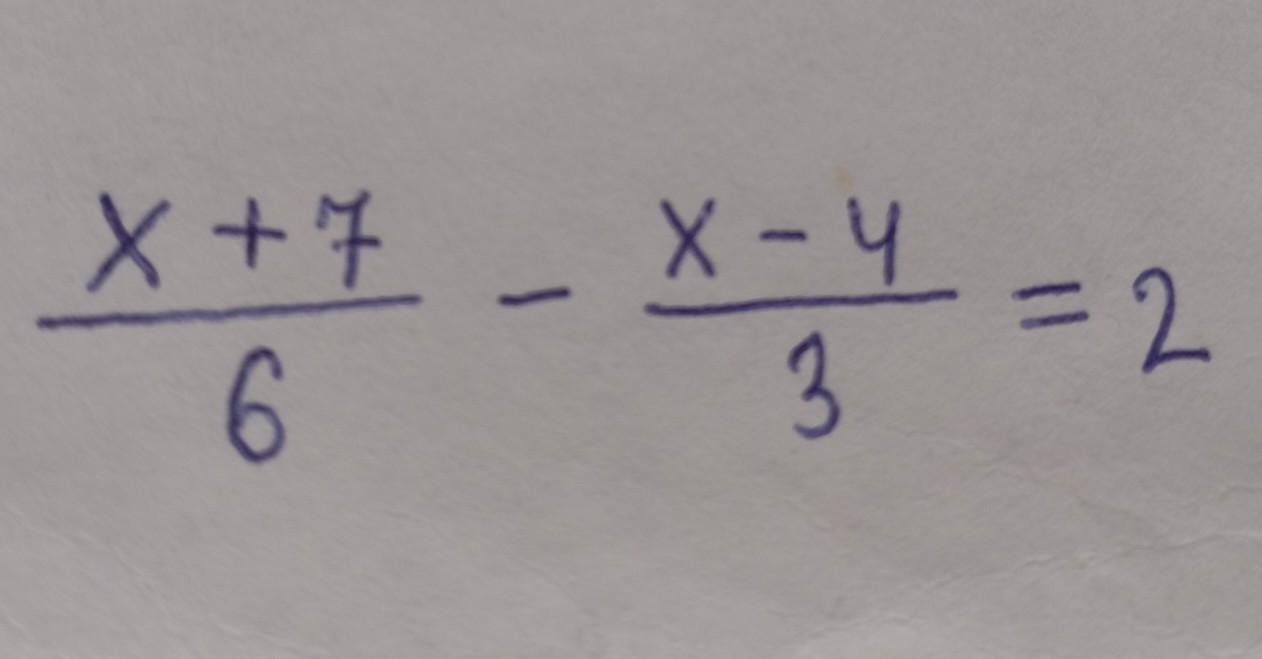 \frac{x+7}{6} - \frac{x-4}{3} = 2